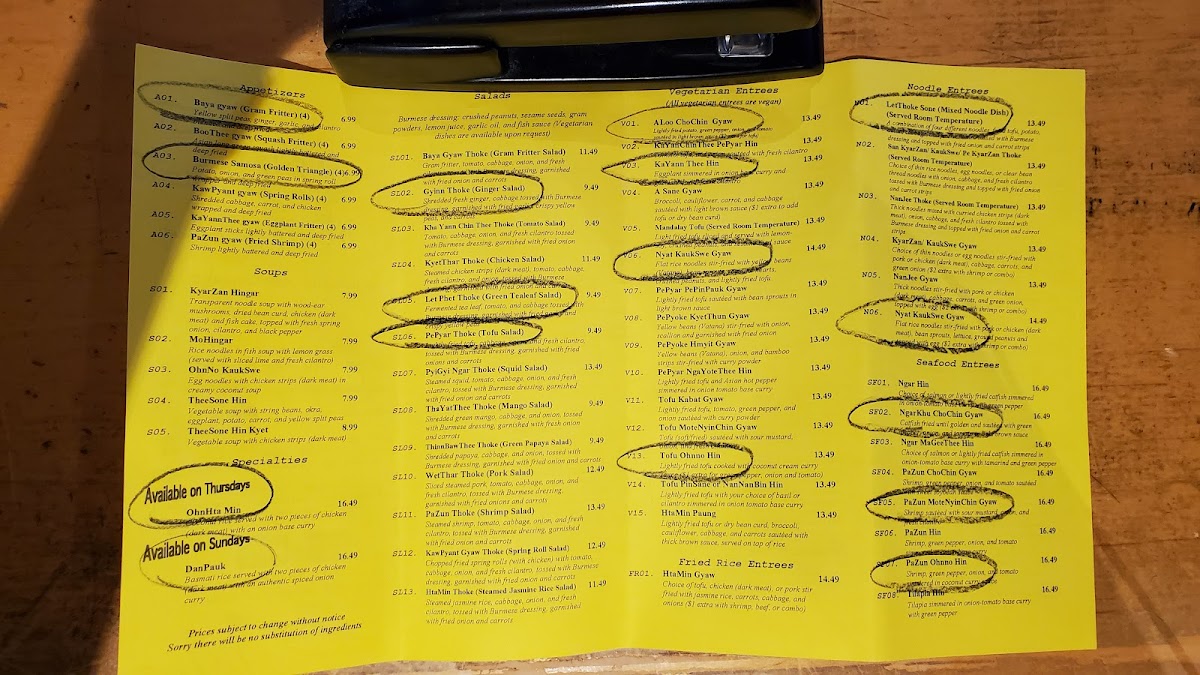 Appetizers
A01. Baya gyaw (Gram Fritter) (4) 6.99
Yellow split peas, ginger, garlic, and cilantro
A02. BooThee gyaw (Squash Fritter) (4) 6.99
deep fried
A03. Burmese Samosa (Golden Triangle) (4) 6.99
Potato, onion, and green peas in spring roll
wrapper and deep fried
A04. KawPyant gyaw (Spring Rolls) (4) 6.99
Shredded cabbage, carrot, and chicken
wrapped and deep fried
A05. KaYannThee gyaw (Eggplant Fritter) (4) 6.99
Eggplant sticks lightly battered and deep fried
A06. PaZun gyaw (Fried Shrimp) (4) 6.99
Shrimp lightly battered and deep fried
Soups
S01. KyarZan Hingar 7.99
Transparent noodle soup with wood-ear
mushrooms, dried bean curd, chicken (dark
meat) and fish cake, topped with fresh spring
onion, cilantro, and black pepper
S02. MoHingar 7.99
Rice noodles in fish soup with lemon grass
(served with sliced lime and fresh cilantro)
S03. OhnNo KaukSwe 7.99
Egg noodles with chicken strips (dark meat) in
creamy coconut soup
S04. TheeSone Hin 7.99
Vegetable soup with string beans, okra,
eggplant, potato, carrot, and yellow split peas
S05. TheeSone Hin Kyet 8.99
Vegetable soup with chicken strips (dark meat)
Specialties
Available on Thursdays
OhnHta Min 16.49
rice served with two pieces of chicken
(dark meat) with an onion base curry
Available on Sundays
DanPauk 16.49
Basmati rice served with two pieces of chicken
(dark meat) with an authentic spiced onion
curry
Prices subject to change without notice
Sorry there will be no substitution of ingredients
Salads
Burmese dressing: crushed peanuts, sesame seeds, gram
powders, lemon juice, garlic oil, and fish sauce (Vegetarian
dishes are available upon request)
SL01. Baya Gyaw Thoke (Gram Fritter Salad) 11.49
Gram fritter, tomato, cabbage, onion, and fresh
cilantro, tossed with Burmese dressing, garnished
with fried onion and carrots
SL02. Gyinn Thoke (Ginger Salad) 9.49
Shredded fresh ginger, cabbage tossed with Burmese
SL03. Kha Yann Chin Thee Thoke (Tomato Salad) 9.49
Tomato, cabbage, onion, and fresh cilantro tossed
with Burmese dressing, garnished with fried onion
and carrots
SL04. KyetThar Thoke (Chicken Salad) 11.49
Steamed chicken strips (dark meat), tomato, cabbage,
SL05. LetPhet Thoke (Green Tealeaf Salad) 9.49
Fermented tealeaf, tomato, and cabbage tossed
SL06. PePyar Thoke (Tofu Salad) 9.49
tossed with Burmese dressing, garnished with fried
onions and carrots
SL07. PyiGyi Ngar Thoke (Squid Salad) 13.49
Steamed squid, tomato, cabbage, onion, and fresh
cilantro, tossed with Burmese dressing, garnished
with fried onion and carrots
SL08. ThaYatThee Thoke (Mango Salad) 9.49
Shredded green mango, cabbage, and onion, tossed
with Burmese dressing, garnished with fried onion
and carrots
SL09. ThinBawThee Thoke (Green Papaya Salad) 9.49
Shredded papaya, cabbage, and onion, tossed with
Burmese dressing, garnished with fried onion and carrots
SL10. WetThar Thoke (Pork Salad) 12.49
Sliced steamed pork, tomato, cabbage, onion, and fresh
cilantro, tossed in Burmese dressing,
garnished with fried onions and carrots
SL11. PaZun Thoke (Shrimp Salad) 13.49
Steamed shrimp, tomato, cabbage, onion, and fresh
cilantro, tossed with Burmese dressing, garnished
with fried onion and carrots
SL12. KawPyant Gyaw Thoke (Spring Roll Salad) 12.49
Chopped fried spring rolls (with chicken) with tomato,
cabbage, onion, and fresh cilantro, tossed with Burmese
dressing, garnished with fried onion and carrots
SL13. HtaMin Thoke (Steamed Jasmine Rice Salad) 11.49
Steamed jasmine rice, cabbage, onion, and fresh
cilantro, tossed with Burmese dressing, garnished
with fried onion and carrots
Vegetarian Entrees
(All vegetarian entrees are vegan)
V01. ALoo ChoChin Gyaw 13.49
Lightly fried potato, green pepper, onion, and tomato
V02. KaYanChinThee PePyar Hin
V03. KaYann Thee Hin 13.49
Eggplant simmered in onion base curry and
V04. A Sane Gyaw 13.49
Broccoli, cauliflower, carrot, and cabbage
sautéed with light brown sauce ($1 extra to add
tofu or dry bean curd)
V05. Mandalay Tofu (Served Room Temperature) 13.49
V06. Nyat KaukSwe Gyaw 14.49
Flat rice noodles stir-fried with yellow beans
V07. PePyar PePinPauk Gyaw 13.49
Lightly fried tofu sautéed with bean sprouts in
brown sauce
V08. PePyoke KyetThun Gyaw 13.49
Yellow beans (Vatana) stir-fried with onion,
scallion and garnished with fried onion
V09. PePyoke Hmyit Gyaw 13.49
Yellow beans (Vatana), onion, and bamboo
strips stir-fried with curry powder
V10. PePyar NgaYoteThee Hin 13.49
Lightly fried tofu and Asian hot pepper
simmered in onion tomato base curry
V11. Tofu Kabat Gyaw 13.49
Lightly fried tofu, tomato, green pepper, and
onion sautéed with curry powder
V12. Tofu MoteNyinChin Gyaw 13.49
Tofu (soft/fried) sautéed with sour mustard,
V13. Tofu Ohnno Hin 13.49
Lightly fried tofu cooked with coconut cream curry
V14. Tofu PinSane or NanNanBin Hin 13.49
Lightly fried tofu with your choice of basil or
cilantro simmered in onion tomato base curry
V15. HtaMin Paung 13.49
Lightly fried tofu or dry bean curd, broccoli,
cauliflower, cabbage, and carrots sautéed with
thick brown sauce, served on top of rice
Fried Rice Entrees
FR01. HtaMin Gyaw 14.49
Choice of tofu, chicken (dark meat), or pork stir
fried with jasmine rice, carrots, cabbage, and
onions ($1 extra with shrimp, beef, or combo)
Noodle Entrees
N01. LetThoke Sone (Mixed Noodle Dish)
(Served Room Temperature) 13.49
A combination of four different noodles, tofu, potato,
tossed with fried onion and carrot strips
N02. San KyarZan/ KaukSwe/ Pe KyarZan Thoke
(Served Room Temperature) 13.49
Choice of thin rice noodles, egg noodles, or clear bean
thread noodles with onion, cabbage, and fresh cilantro
tossed with Burmese dressing and topped with fried onion
and carrot strips
N03. NanJee Thoke (Served Room Temperature) 13.49
Thick noodles mixed with curried chicken strips (dark
meat), onion, cabbage, and fresh cilantro tossed with
Burmese dressing and topped with fried onion and carrot
strips
N04. KyarZan/ KaukSwe Gyaw 13.49
Choice of thin noodles or egg noodles stir-fried with
pork or chicken (dark meat), cabbage, carrots, and
green onion ($1 extra with shrimp or combo)
N05. NanJee Gyaw 13.49
Thick noodles stir-fried with pork or chicken
(dark meat), cabbage, carrots, and green onion,
N06. Nyat KaukSwe Gyaw 14.49
Flat rice noodles stir-fried with pork or chicken (dark
meat), bean sprouts, lettuce, ground peanuts and
Seafood Entrees
SF01. Ngar Hin 16.49
Choice of salmon or lightly fried catfish simmered
SF02. NgarKhu ChoChin Gyaw 16.49
Catfish fried until golden and sautéed with green
SF03. Ngar MaGeeThee Hin 16.49
Choice of salmon or lightly fried catfish simmered in
onion-tomato base curry with tamarind and green pepper
SF04. PaZun ChoChin Gyaw 16.49
SF05. PaZun MoteNyinChin Gyaw 16.49
Shrimp sautéed with sour mustard, onion, and
SF06. PaZun Hin 16.49
Shrimp, green pepper, onion, and tomato
SF07. PaZun Ohnno Hin 16.49
Shrimp, green pepper, onion, and tomato
simmered in coconut curry
SF08. Tilapia Hin 16.49
Tilapia simmered in onion-tomato base curry
with green pepper